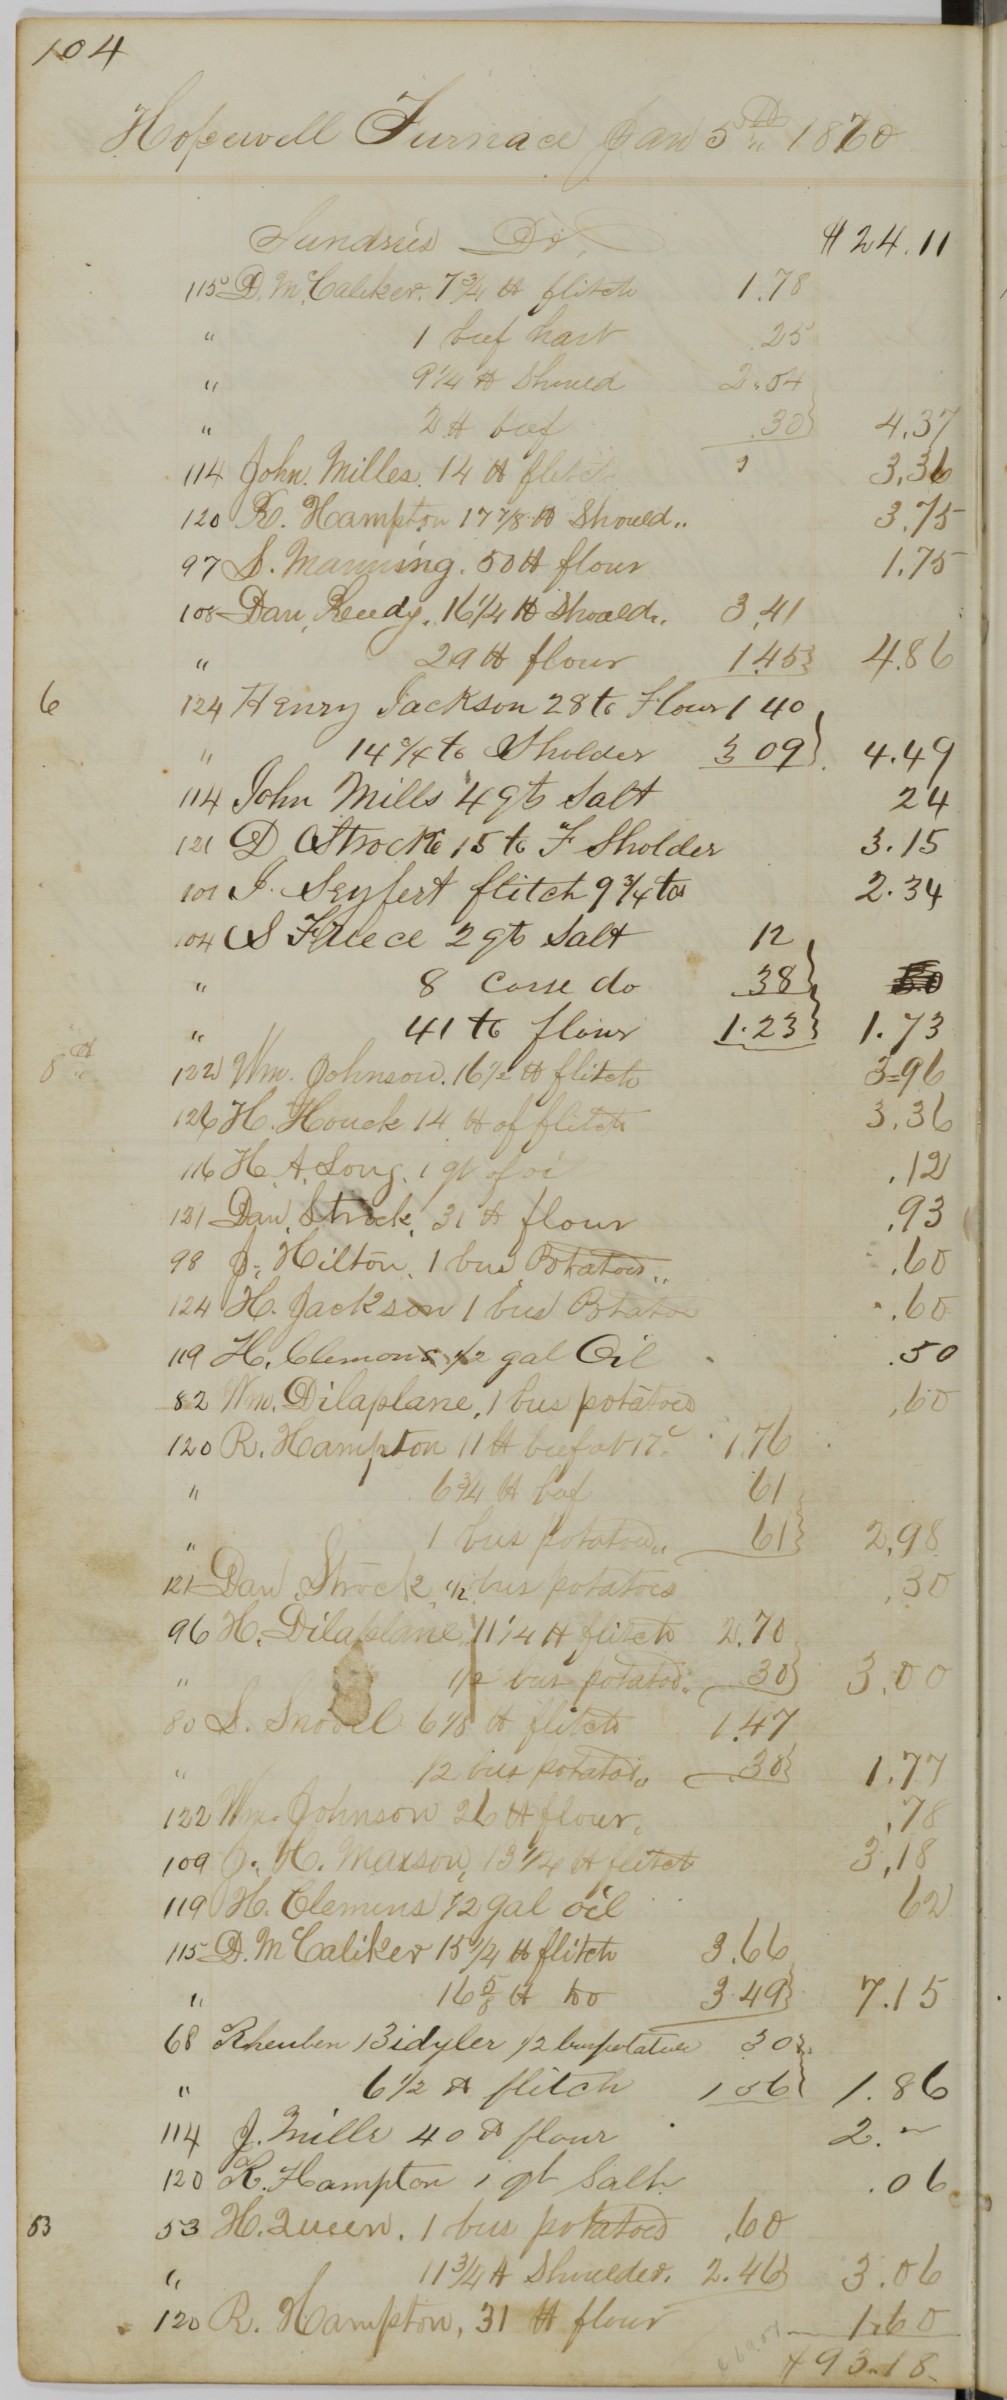 104
Hopewell Furnace Jan 5th 1870
Sundries Dr. $24.11
115 D. McCaliker. 7 3/4 lb flitch 1.78
" 1 beef hart .25
" 9 1/4 lb Should 2.04
" 2 lb beef .30 4.37
114 John. Milles. 14 lb flitch 3.36
120 R. Hampton 17 7/8 lb Should.. 3.75
97 S. Manning. 50 lb flour 1.75
108 Dan. Reedy. 16 1/4 lb Should.. 3.41
" 29 lb flour 1.45 4.86
6 124 Henry Jackson 28 lb Flour 1 40
" 14 3/4 lb Sholder 3 09 4.49
114 John Mills 4 qts Salt 24
121 D Strock 15 lb F Sholder 3.15
101 J. Seyfert flitch 9 3/4 lbs 2.34
104 S Freece 2 qts Salt 12
" 8 Corse do 38 50
" 41 lb flour 1.23 1.73
8th 122 Wm. Johnson. 16 1/2 lb flitch 3=96
126 H. Houck 14 lb of flitch 3.36
116 H. A. Long. 1 qt of oi .12
121 Dan. Strock, 31 lb flour .93
98 J. Hilton. 1 bus Potatoes.. .60
124 H. Jackson 1 bus Potatoe .60
119 H. Clemons 1/2 gal Oil .50
82 Wm. Dilaplane. 1 bus potatoes .60
120 R. Hampton 11 lb beef at 17c 1.76
" 6 3/4 lb beef 61
" 1 bus potatoes.. 61 2.98
121 Dan. Strock, 1/2 bus potatoes .30
96 H. Dilaplane 11 1/4 lb flitch 2.70
" 1/2 bus potatoe. 30 3.00
80 S. Snovel 6 1/8 lb flitch 1.47
" 1/2 bus potatoe.. .30 1.77
122 Wm. Johnson 26 lb flour. .78
109 J. H. Maxson, 13 1/4 lb flitch 3.18
119 H. Clemens 1/2 gal oil 62
115 D. McCaliker 15 1/4 lb flitch 3.66
" 16 5/8 lb do 3.49 7.15
68 Rheuben Bidyler 1/2 bus potatoes 30
" 6 1/2 lb flitch 1 56 1.86
114 J. Mills 40 lb flour 2.~
120 R. Hampton 1 qt Salt. .06
53 53 H. Queen. 1 bus potatoes .60
" 11 3/4 lb Shoulder. 2.46 3.06
120 R. Hampton, 31 lb flour 1.60
$93.18